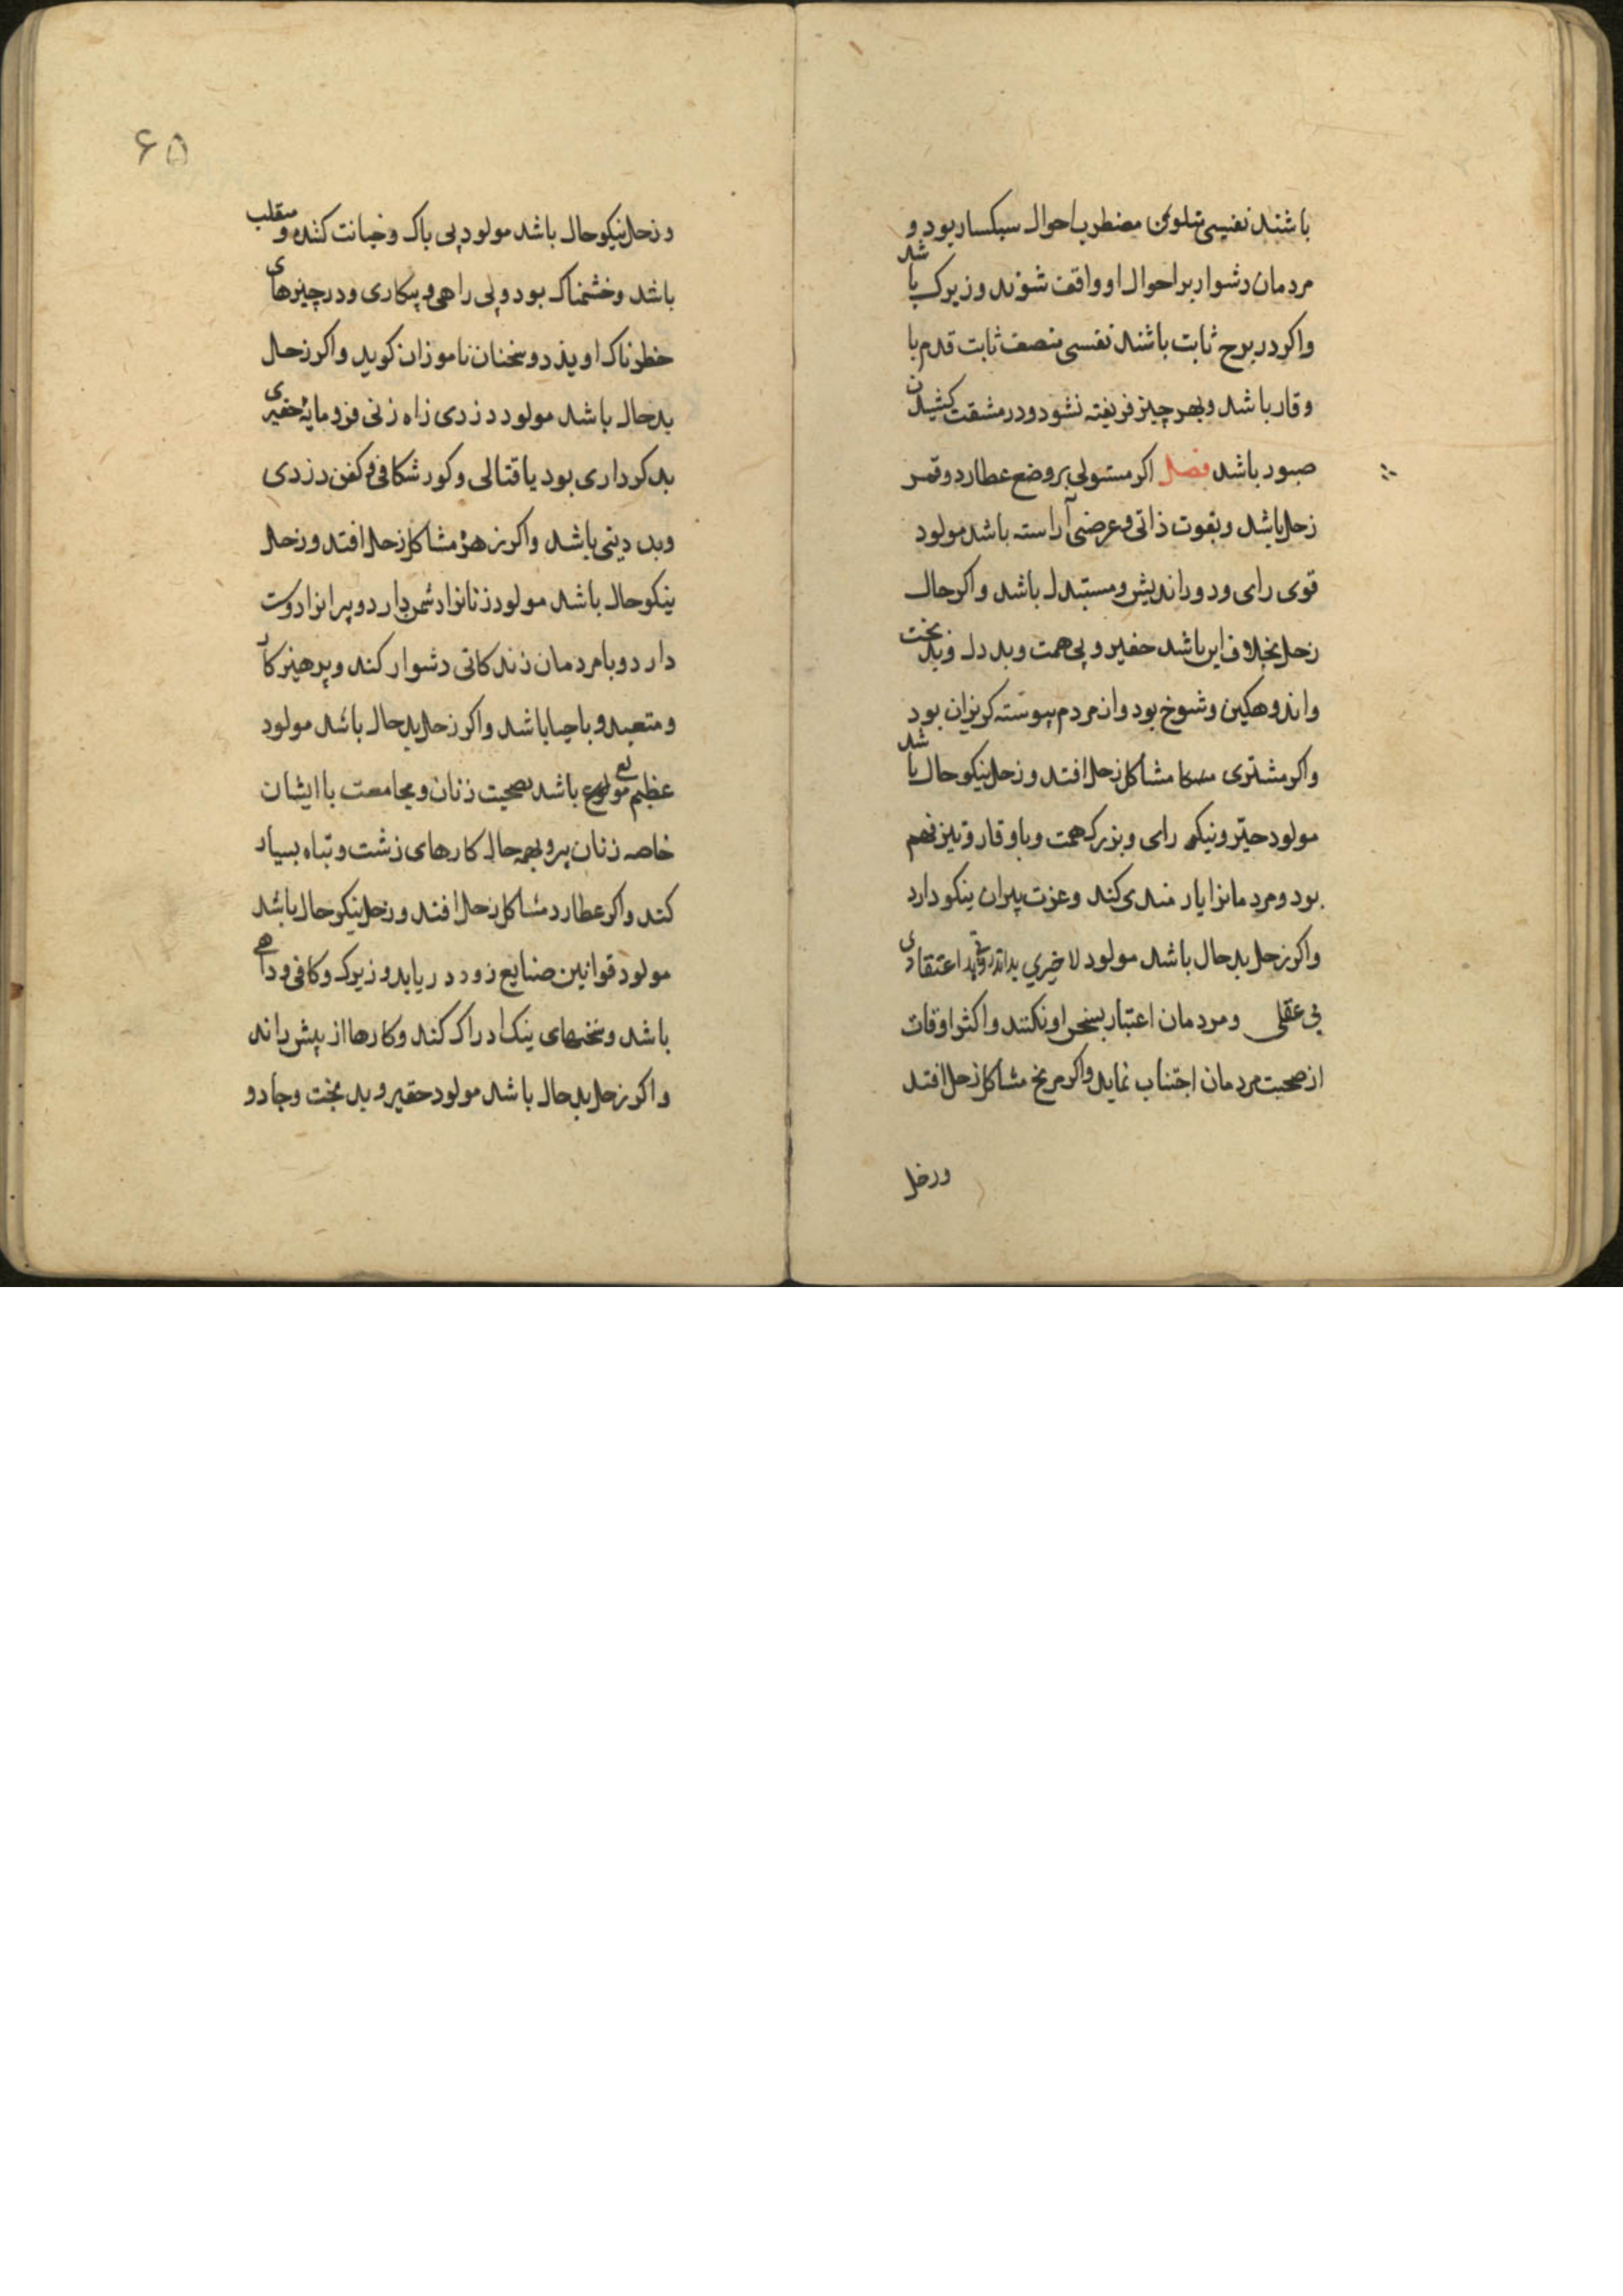 باشند نفسی متلون مضطرب احوال سبکسار بود و
مردمان دشوار بر احوال او واقف شوند و زیرک باشد
واکر در برج ثابت باشند نفسی منصف ثابت قدم با
وقار باشد و بهر چیز فریفته نشود و در مشقت کشیدن
صبور باشد فصل اکر مستولی بر وضع عطارد و قمر
زحل باشد و بقوت ذاتی و عرضی آراسته باشد مولود
قوی رای و دوراندیش و مستبد باشد واکر حال
زحل بخلاف این باشد حقیر و بی همت و بد دل و بدبخت
و اندوهکین و شوخ بود و از مردم پیوسته کریزان بود
واکر مشتری مشاکل زحل افتد و زحل نیکوحال باشد
مولود خیر و نیکو رای و بزرک همت و با وقار و تیز فهم
بود و مردمانرا یارمندی کند و عزت پیران نیکو دارد
واکر زحل بدحال باشد مولود لاخیری بد اعتقادی
بی عقلی و مردمان اعتبار بسخن او نکنند و اکثر اوقات
از صحبت مردمان اجتناب نماید واکر مریخ مشاکل زحل افتد
و زحل
۶۵
و زحل نیکوحال باشد مولود بی باک و خیانت کننده و متقلب
باشد و خشمناک بود و بی راهی و پیکاری و در چیزهای
خطرناک اویزد و سخنان ناموزان کوید واکر زحل
بدحال باشد مولود دزدی راه زنی فرومایهٔ حقیری
بد کرداری بود یا قتالی و کور شکافی و کفن دزدی
و بد دینی باشد واکر زهره مشاکل زحل افتد و زحل
نیکوحال باشد مولود زنانرا دشمن دارد و پیرانرا دوست
دارد و با مردمان زندکانی دشوار کند و پرهیزکار
و متعبد و با حیا باشد واکر زحل بدحال باشد مولود
عظیم مولع باشد بصحبت زنان و مجامعت با ایشان
خاصه زنان پیر و بهمه حال کارهای زشت و تباه بسیار
کند واکر عطارد مشاکل زحل افتد و زحل نیکوحال باشد
مولود قوانین صنایع زود دریابد و زیرک و کافی و داهی
باشد و سخنهای نیک ادراک کند و کارها از پیش راند
واکر زحل بدحال باشد مولود حقیر و بدبخت و جادو